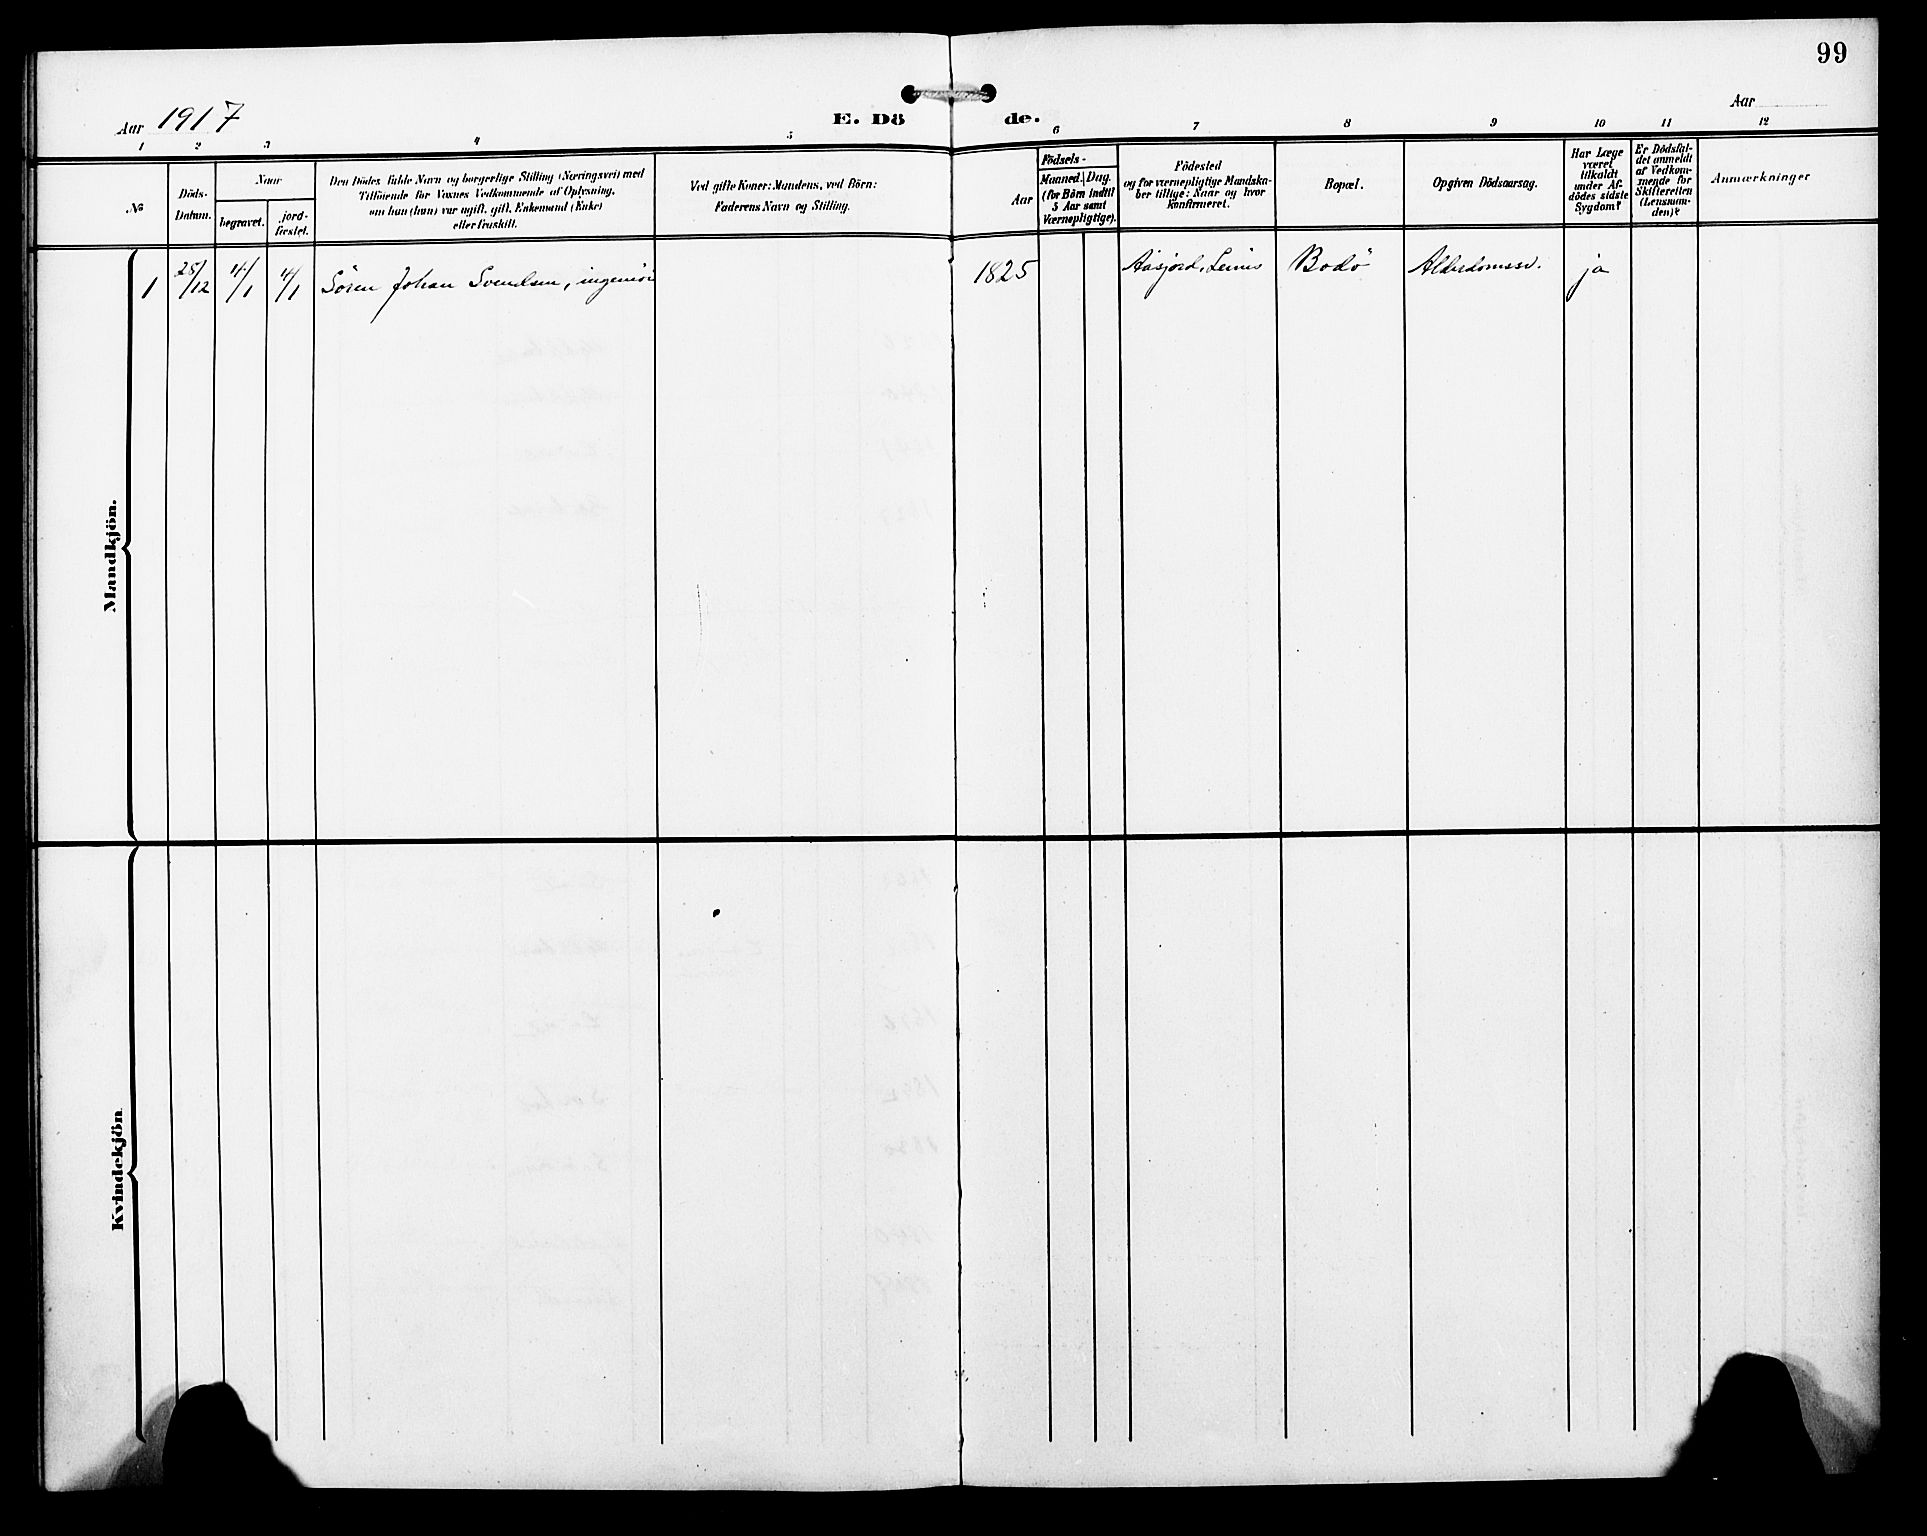 99
Aar 1917
E. Dö
de.
Aar
1 2 3 4 5 6 7 8 9 10 11 12
No
Döds-
Datum.
Naar
begravet.
jord-
fæstet.
Den Dödes fulde Navn og borgerlige Stilling (Næringsvei) med
Tilföiende for Voxnes Vedkommende af Oplysning,
om han (hun) var ugift, gift, Enkemand (Enke)
eller fraskilt.
Ved gifte Koner: Mandens, ved Börn:
Faderens Navn og Stilling.
Aar
Födsels-
Maaned. Dag.
(for Børn indtil
5 Aar samt
Værnepligtige).
Födested
og for værnepligtige Mandska-
ber tillige: Naar og hvor
konfirmeret.
Bopæl.
Opgiven Dödsaarsag.
Har Læge
været
tilkaldt
under Af-
dödes sidste
Sygdom?
Er Dödsfal-
det anmeldt
af Vedkom-
mende for
Skifteretten
(Lensman-
den)?
Anmærkninger
Mandkjön.
1 28/12 4/1 4/1 Sören Johan Svendsen, ingeniör 1825 Aasjord, Leines Bodö Alderdomssv. ja
Kvindekjön